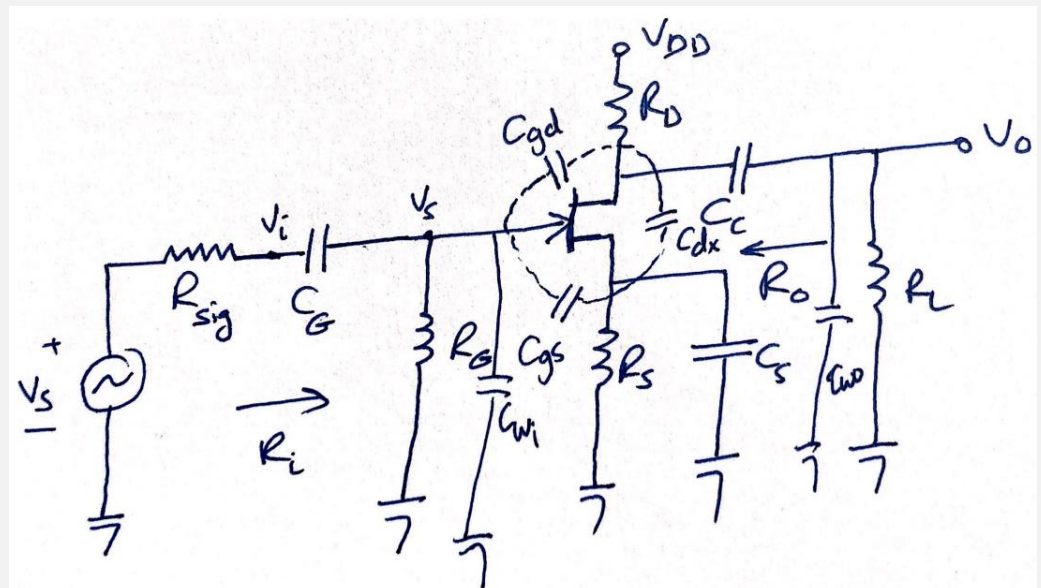 VDD
RD
Cgd
Vo
Vi
Vs
Cc
Cdx
Rsig
CG
Ro
RL
+
Vs
-
RG
Cgs
Rs
Cs
Cwo
Cwi
Ri